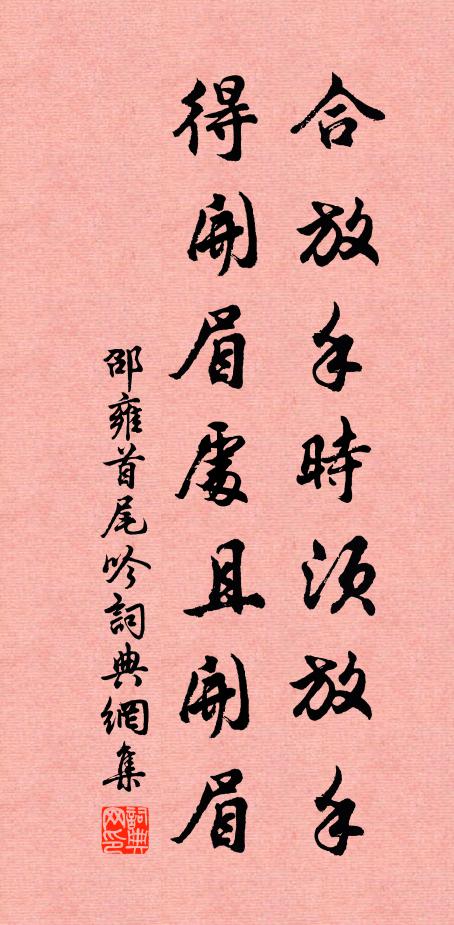 合放手時須放手
得開眉處且開眉
邵雍首尾吟詞典網集
詞典网印